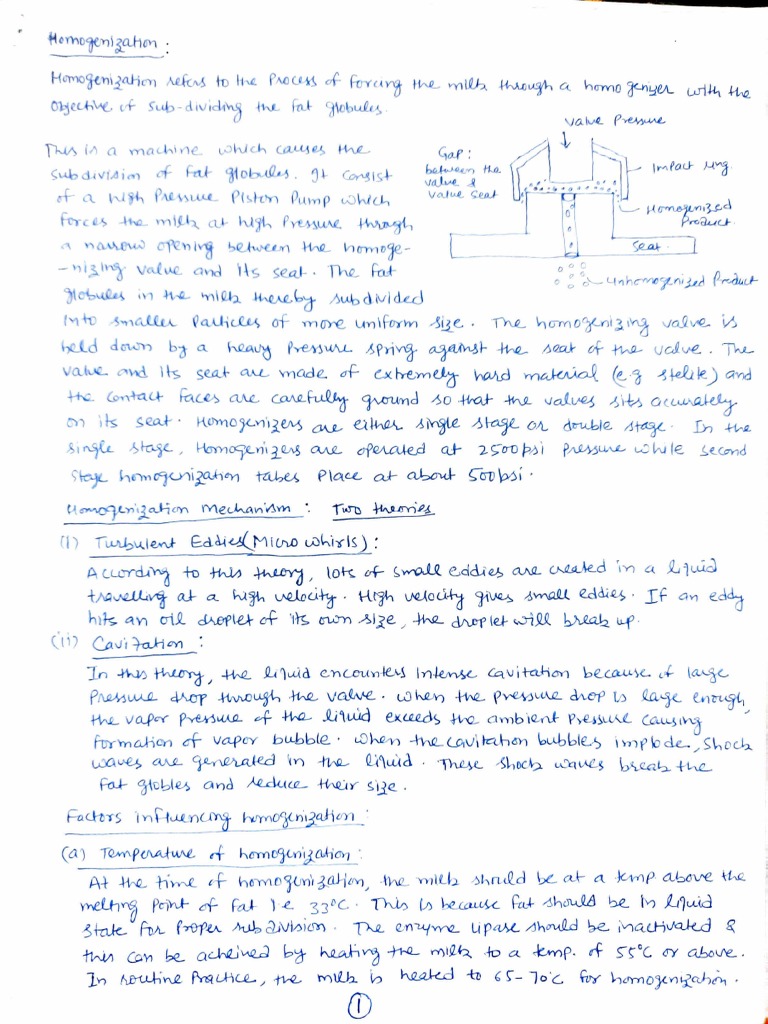 Homogenization :
Homogenization refers to the Process of forcing the milk through a homogeniyer with the
objective of sub-dividing the fat globules.
This is a machine which causes the
subdivision of fat globules. It consist
of a high Pressure Piston Pump which
forces the milk at high Pressure through
a narrow opening between the homoge-
-nizing valve and its seat. The fat
globules in the milk thereby subdivided
valve Pressure
Gap :
between the
valve &
valve seat
Impact ring
Homogenized
Product.
Seat
Unhomogenized Product
into smaller Particles of more uniform size. The homogenizing valve is
held down by a heavy Pressure spring against the seat of the valve. The
valve and its seat are made of extremely hard material (e.g stelite) and
the contact faces are carefully ground so that the valves sits accurately
on its seat. Homogenizers are either single stage or double stage. In the
single stage, Homogenizers are operated at 2500psi Pressure while second
stage homogenization takes Place at about 500psi.
Homogenization Mechanism : Two theories
(i) Turbulent Eddies (Micro whirls) :
According to this theory, lots of small eddies are created in a liquid
travelling at a high velocity. High velocity gives small eddies. If an eddy
hits an oil droplet of its own size, the droplet will break up.
(ii) Cavitation :
In this theory, the liquid encounters Intense cavitation because of large
Pressure drop through the valve. When the pressure drop is large enough,
the vapor Pressure of the liquid exceeds the ambient Pressure causing
formation of vapor bubble. When the cavitation bubbles implode, Shock
waves are generated in the liquid. These shock waves break the
fat globles and reduce their size.
Factors influencing homogenization :
(a) Temperature of homogenization :
At the time of homogenization, the milk should be at a temp above the
melting Point of fat i.e 33°C. This is because fat should be in liquid
state for Proper subdivision. The enzyme lipase should be inactivated &
this can be acheived by heating the milk to a temp. of 55°C or above.
In routine Practice, the milk is heated to 65-70°C for homogenization.
1